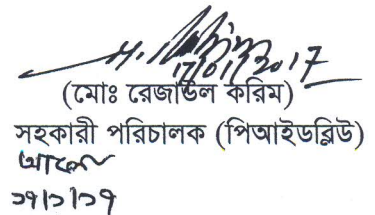 17/01/2017
(মোঃ রেজাউল করিম)
সহকারী পরিচালক (পিআইডব্লিউ)
১৭/১/১৭